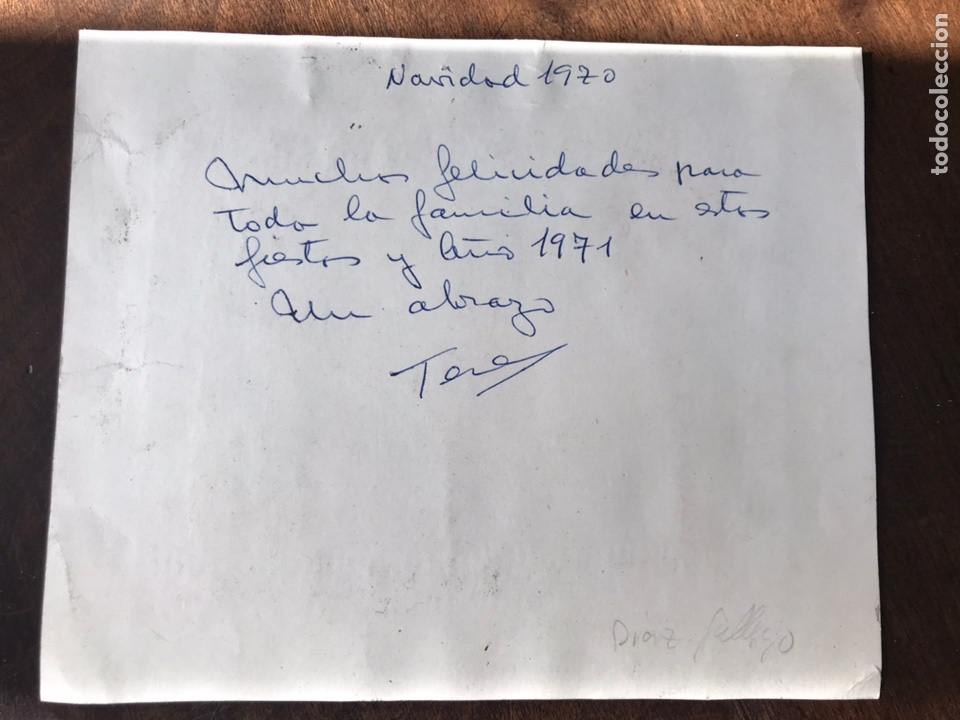 Navidad 1970
Muchas felicidades para
toda la familia en estas
fiestas y Año 1971
Un abrazo
Tere
Diaz Gallego
todocoleccion